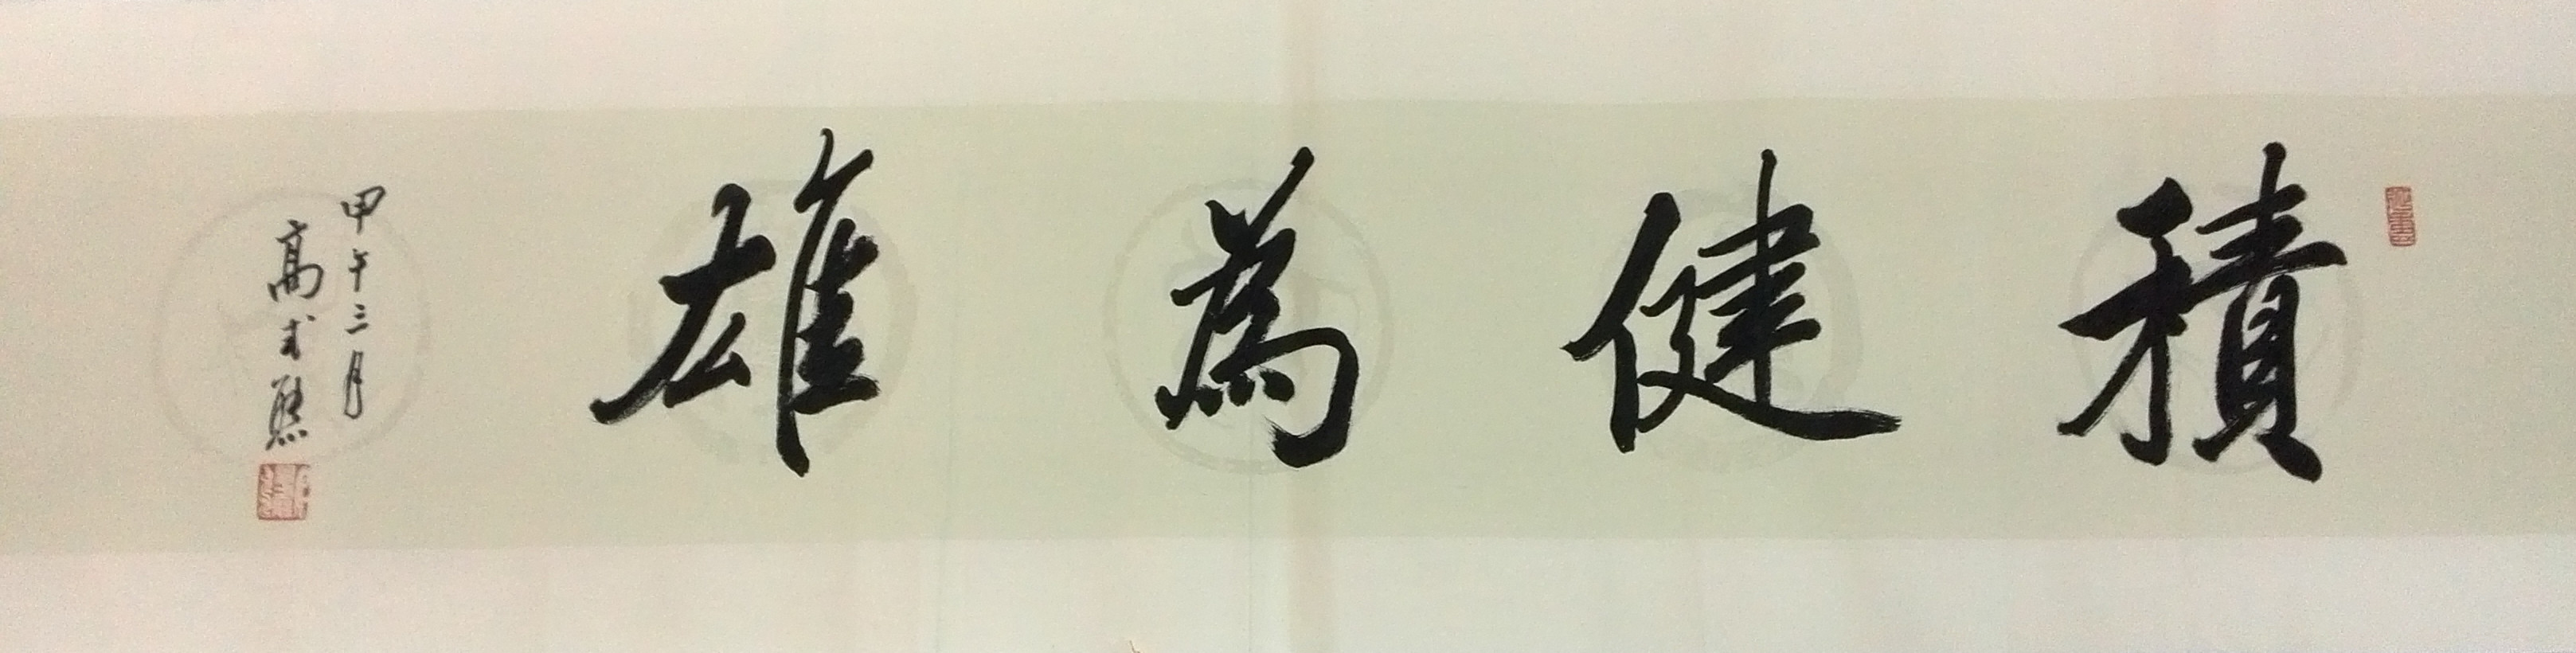 積健為雄
甲午三月
高式熊